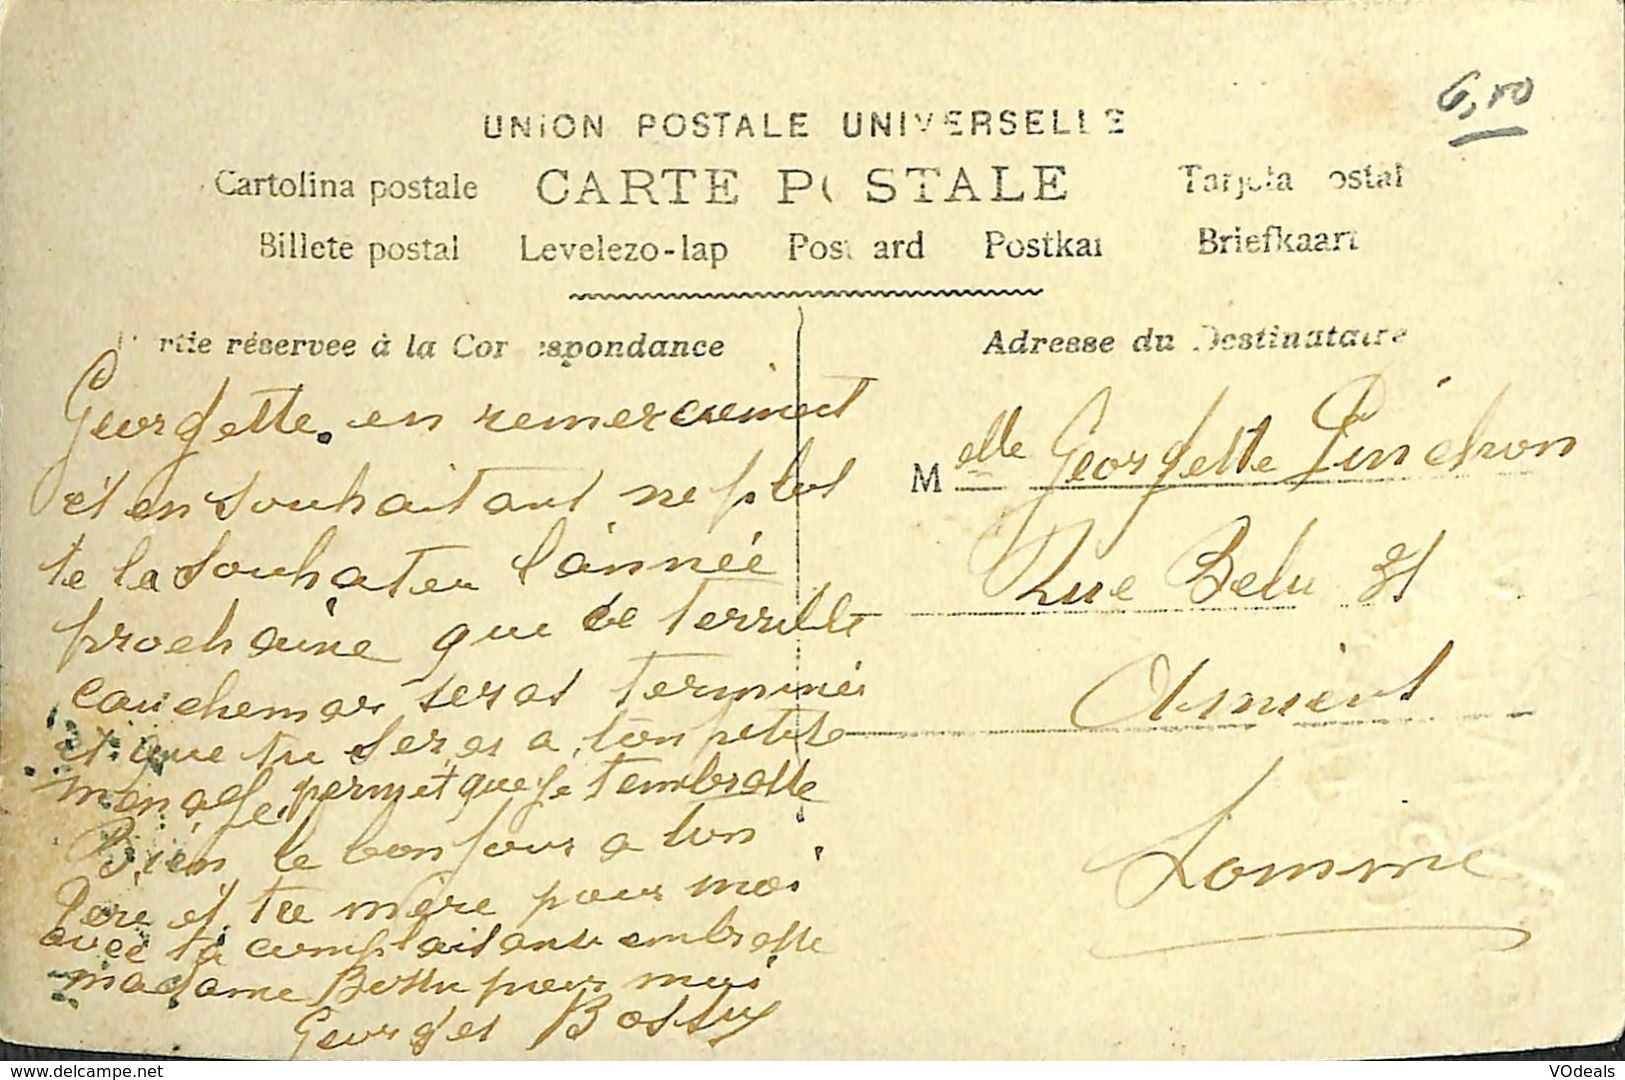 6,10
UNION POSTALE UNIVERSELLE
Cartolina postale CARTE POSTALE Tarjeta postal
Billete postal Levelezo-lap Post ard Postkar Briefkaart
rtie réservee à la Cor espondance
Adresse du Destinataire
Georgette. en remerciement
et en souhaitant ne plus
te la souhater l'année
prochaine que ce terrible
cauchemar seras terminér
et que tu seres a ton petite
menage permet que je t'embrasse
Bien le bonjour a ton
père et ta mère pour moi
avec ta complaisance embrasse
madame Bossu pour moi
Georges Bossu
Melle Georgette Pinchon
Rue Belu 31
Amiens
Somme
delcampe.net
VOdeals